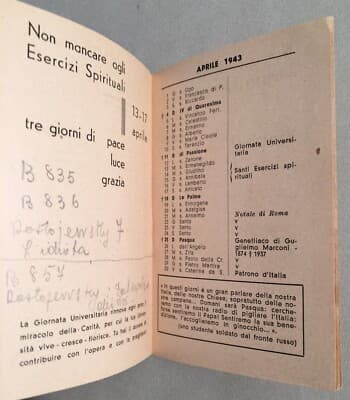 Non mancare agli
Esercizi Spirituali
13-17
aprile
tre giorni di pace
luce
grazia
B 835
B 836
Dostojewsky 7
L'idiota
B 857
Dostojewsky
La Giornata Universitaria rinnova ogni anno il
miracolo della Carità, per cui la tua Università
vive - cresce - fiorisce. Tu hai il dovere di
contribuire con l'opera e con le preghiere
APRILE 1943
1 G s. Ugo
2 V s. Francesco di P.
3 S s. Riccardo
4 D IV di Quaresima
5 L s. Vincenzo Ferr.
6 M s. Celestino
7 M s. Ermanno
8 G s. Alberto
9 V s. Maria Cleofe
10 S s. Terenzio
11 D di Passione
12 L s. Zenone
13 M s. Ermenegildo
14 M s. Giustino
15 G s. Annibale
16 V s. Lamberto
17 S s. Aniceto
18 D Le Palme
19 L s. Ermogene
20 M s. Adalgisa
21 M s. Anselmo
22 G Santo
23 V Santo
24 S Santo
25 D Pasqua
26 L dell'Angelo
27 M s. Zita
28 M s. Paolo della Cr.
29 G s. Pietro Martire
30 V s. Caterina da S.
Giornata Universitaria
Santi Esercizi spirituali
Natale di Roma
Genetliaco di Guglielmo Marconi - 1874 † 1937
Patrono d'Italia
«In questi giorni è un gran parlare della nostra
Italia, delle nostre Chiese, soprattutto delle nostre
cerchiamo. Domani sarà Pasqua: cercheremo
con la nostra radio di pigliare l'Italia. Forse
sentiremo il Papa! Sentiremo la sua benedizione,
l'accoglieremo in ginocchio... ».
(uno studente soldato dal fronte russo)